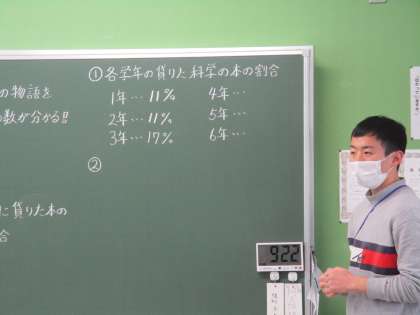 の物語を
数が分かる!!
に貸りた本の
合
①各学年の貸りた科学の本の割合
1年…11% 4年…
2年…11% 5年…
3年…17% 6年…
②
922